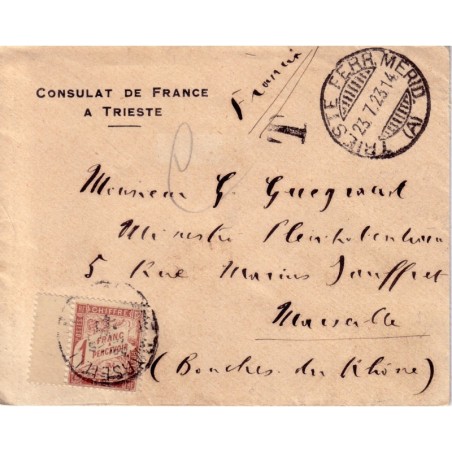 CONSULAT DE FRANCE
A TRIESTE
Francia
T
TRIESTE FERR. MERID
23.7.23.14
(A)
Monsieur G.
Ministre Plénipotentiaire
5 Rue Marius Jauffret
Marseille
(Bouches du Rhône)
CHIFFRE
1
FRANC
A PERCEVOIR
MARSEILLE